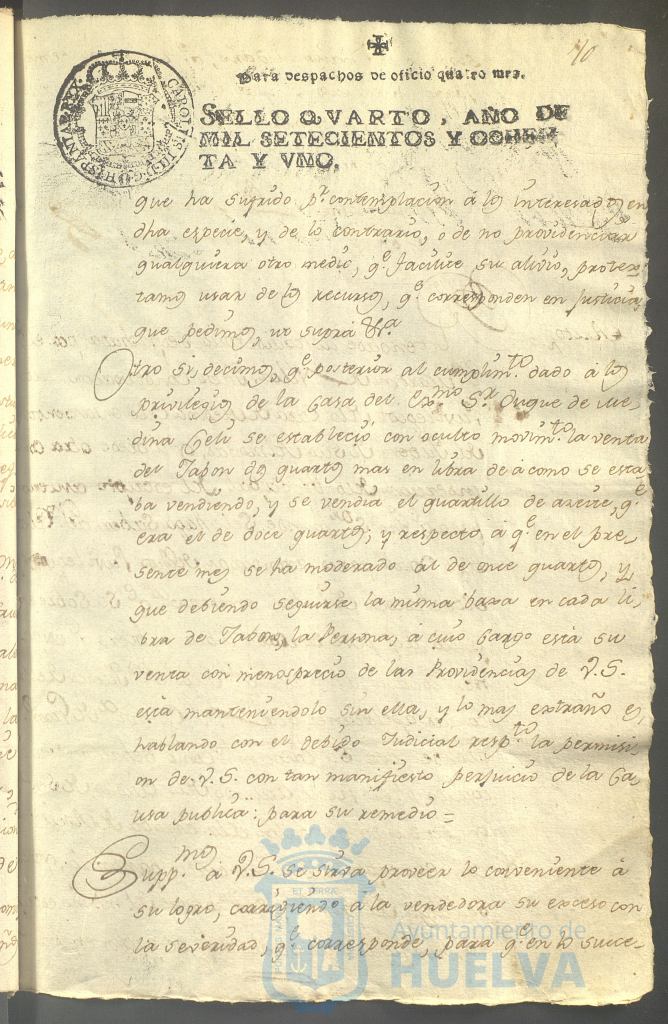 40
Para despachos de oficio quatro mrs.
SELLO QVARTO, AÑO DE
MIL SETECIENTOS Y OCHEN
TA Y VNO.
CAROLVS III D G HISPANIAR REX
que ha sufrido pr contemplacion á los interesados en
dha especie, y de lo contrario, ó de no providenciar
qualquiera otro medio, qe facilite su alivio, protes
tamos usar de los recursos, qe corresponden en justicia
que pedimos, ut supra &a
Otro si, decimos, qe posterior al cumplimto dado á los
Privilegios de la Casa del Exmo Sr Duque de Me-
dina Celi se estableció con oculto movimto la venta
del Jabon dos quartos mas en libra de á como se esta-
ba vendiendo, y se vendia el quartillo de azeite, qe
era el de doce quartos; y respecto á qe en el pre-
sente mes se ha moderado al de once quartos, y
que debiendo seguirse la misma baxa en cada li-
bra de Jabon, la Persona, á cuio cargo está su
venta con menosprecio de las Providencias de V.S.
está manteniendolo sin ella, y lo mas extraño es,
hablando con el debido Judicial respto la permisi-
on de V.S. con tan manifiesto perjuicio de la Ca-
usa publica: para su remedio =
Suppmos á V.S. se sirva proveer lo conveniente á
su logro, corrigiendo á la vendedora su exceso con
la severidad, qe corresponde, para qe en lo suce-
Ayuntamiento de
HUELVA